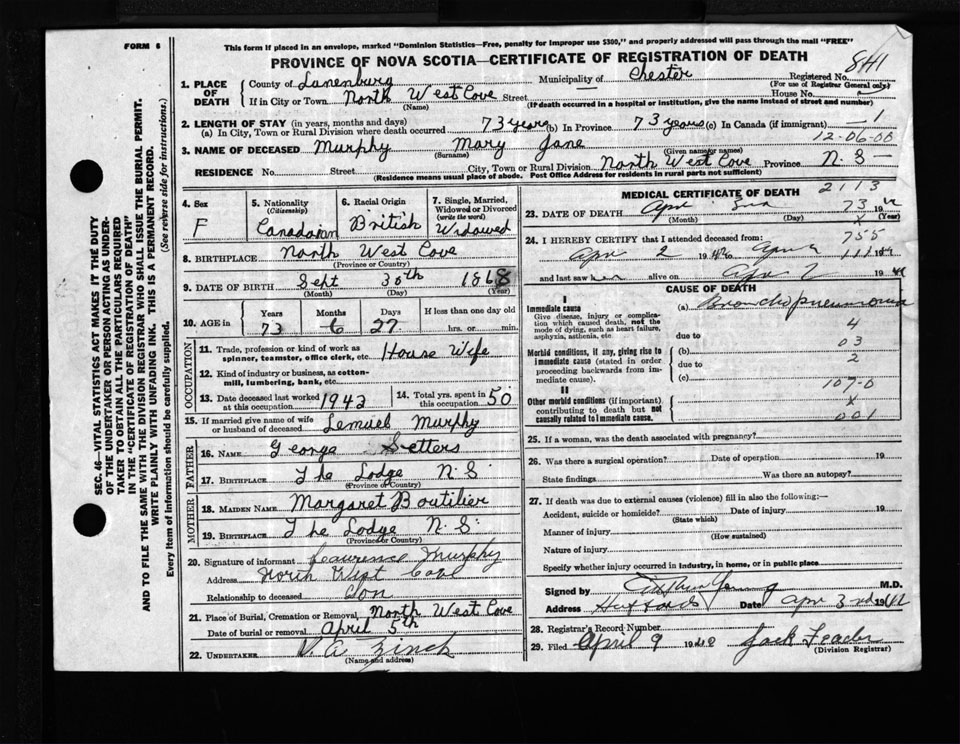 FORM 6
This form if placed in an envelope, marked "Dominion Statistics—Free, penalty for improper use $300," and properly addressed will pass through the mail "FREE"
PROVINCE OF NOVA SCOTIA—CERTIFICATE OF REGISTRATION OF DEATH
841
1. PLACE OF DEATH County of Lunenburg Municipality of Chester Registered No.
(For use of Registrar General only)
If in City or Town North West Cove Street House No.
(Name) (If death occurred in a hospital or institution, give the name instead of street and number)
2. LENGTH OF STAY (in years, months and days)
(a) In City, Town or Rural Division where death occurred 73 years (b) In Province 73 years (c) In Canada (if immigrant) 1
12-06-00
3. NAME OF DECEASED Murphy Mary Jane
(Surname) (Given name or names)
RESIDENCE No. Street City, Town or Rural Division North West Cove Province N. S —
(Residence means usual place of abode. Post Office Address for residents in rural parts not sufficient)
4. Sex F
5. Nationality (Citizenship) Canadian
6. Racial Origin British
7. Single, Married, Widowed or Divorced (write the word) Widowed
8. BIRTHPLACE North West Cove
(Province or Country)
9. DATE OF BIRTH Sept 30th 1868
(Month) (Day) (Year)
10. AGE in Years Months Days If less than one day old
73 6 27 hrs. or min.
OCCUPATION
11. Trade, profession or kind of work as spinner, teamster, office clerk, etc. House Wife
12. Kind of industry or business, as cotton-mill, lumbering, bank, etc.
13. Date deceased last worked at this occupation 1942
14. Total yrs. spent in this occupation 50
15. If married give name of wife or husband of deceased Lemuel Murphy
FATHER
16. NAME George Setters
17. BIRTHPLACE The Lodge N. S.
(Province or Country)
MOTHER
18. MAIDEN NAME Margaret Boutilier
19. BIRTHPLACE The Lodge N. S.
(Province or Country)
20. Signature of informant Laurence Murphy
Address North West Cove
Relationship to deceased Son
21. Place of Burial, Cremation or Removal North West Cove
Date of burial or removal April 5th
22. UNDERTAKER V. A. Zinck
(Name and address)
MEDICAL CERTIFICATE OF DEATH
2113
23. DATE OF DEATH Apr 3rd 19
(Month) (Day) (Year)
73
X
24. I HEREBY CERTIFY that I attended deceased from:
755
Apr 2 1942 to Apr
111
and last saw her alive on Apr 2 19
CAUSE OF DEATH
I
Immediate cause
Give disease, injury or complication which caused death, not the mode of dying, such as heart failure, asphyxia, asthenia, etc.
(a) Bronchopneumonia
4
due to
03
Morbid conditions, if any, giving rise to immediate cause (stated in order proceeding backwards from immediate cause).
(b)
2
due to
(c)
107-0
II
Other morbid conditions (if important) contributing to death but not causally related to immediate cause.
X
001
25. If a woman, was the death associated with pregnancy?
26. Was there a surgical operation? Date of operation 19
State findings Was there an autopsy?
27. If death was due to external causes (violence) fill in also the following:—
Accident, suicide or homicide? Date of injury 19
(State which)
Manner of injury
(How sustained)
Nature of injury
Specify whether injury occurred in industry, in home, or in public place
Signed by M.D.
Address Date Apr 3rd 1942
28. Registrar's Record Number
29. Filed April 9 1942 Jack Leader
(Division Registrar)
SEC. 46—VITAL STATISTICS ACT MAKES IT THE DUTY
OF THE UNDERTAKER OR PERSON ACTING AS UNDER-
TAKER TO OBTAIN ALL THE PARTICULARS REQUIRED
IN THE "CERTIFICATE OF REGISTRATION OF DEATH"
AND TO FILE THE SAME WITH THE DIVISION REGISTRAR WHO SHALL ISSUE THE BURIAL PERMIT.
WRITE PLAINLY WITH UNFADING INK. THIS IS A PERMANENT RECORD.
Every item of information should be carefully supplied. (See reverse side for instructions.)